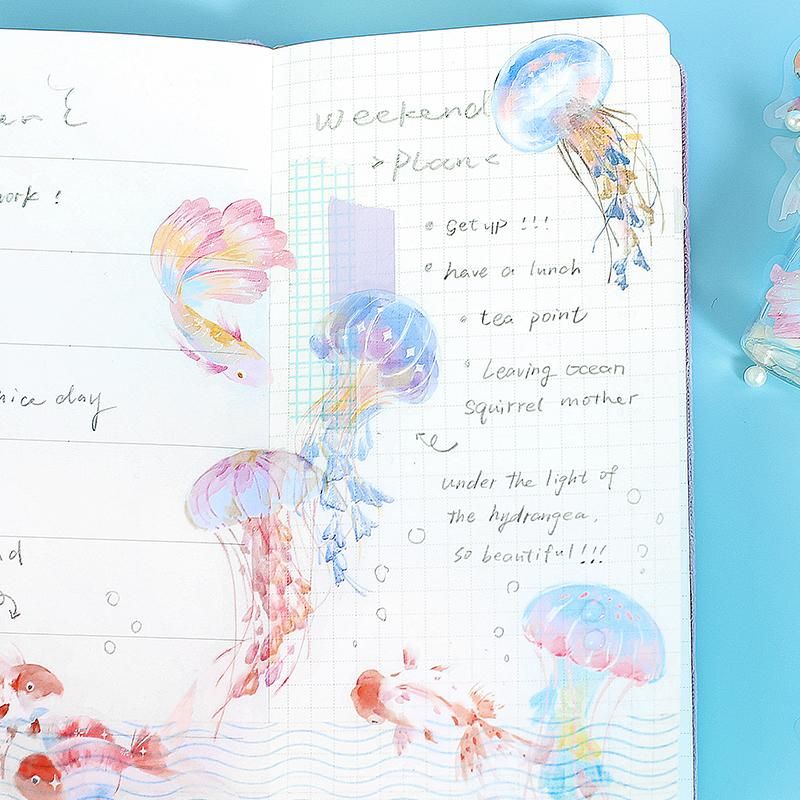 work !
nice day
weekend
> plan <
get up !!!
have a lunch
tea point
Leaving ocean
squirrel mother
under the light of
the hydrangea,
so beautiful!!!